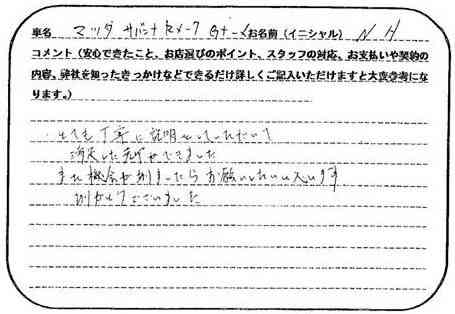 車名 マツダ サバンナRX-7 Bナース お名前（イニシャル） N H
コメント（安心できたこと、お店選びのポイント、スタッフの対応、お支払いや契約の
内容、弊社を知ったきっかけなどできるだけ詳しくご記入いただけますと大変参考にな
ります。）
とても丁寧に説明していただいて
満足した売却ができました
また機会がありましたらお願いしたいと思います
ありがとうございました